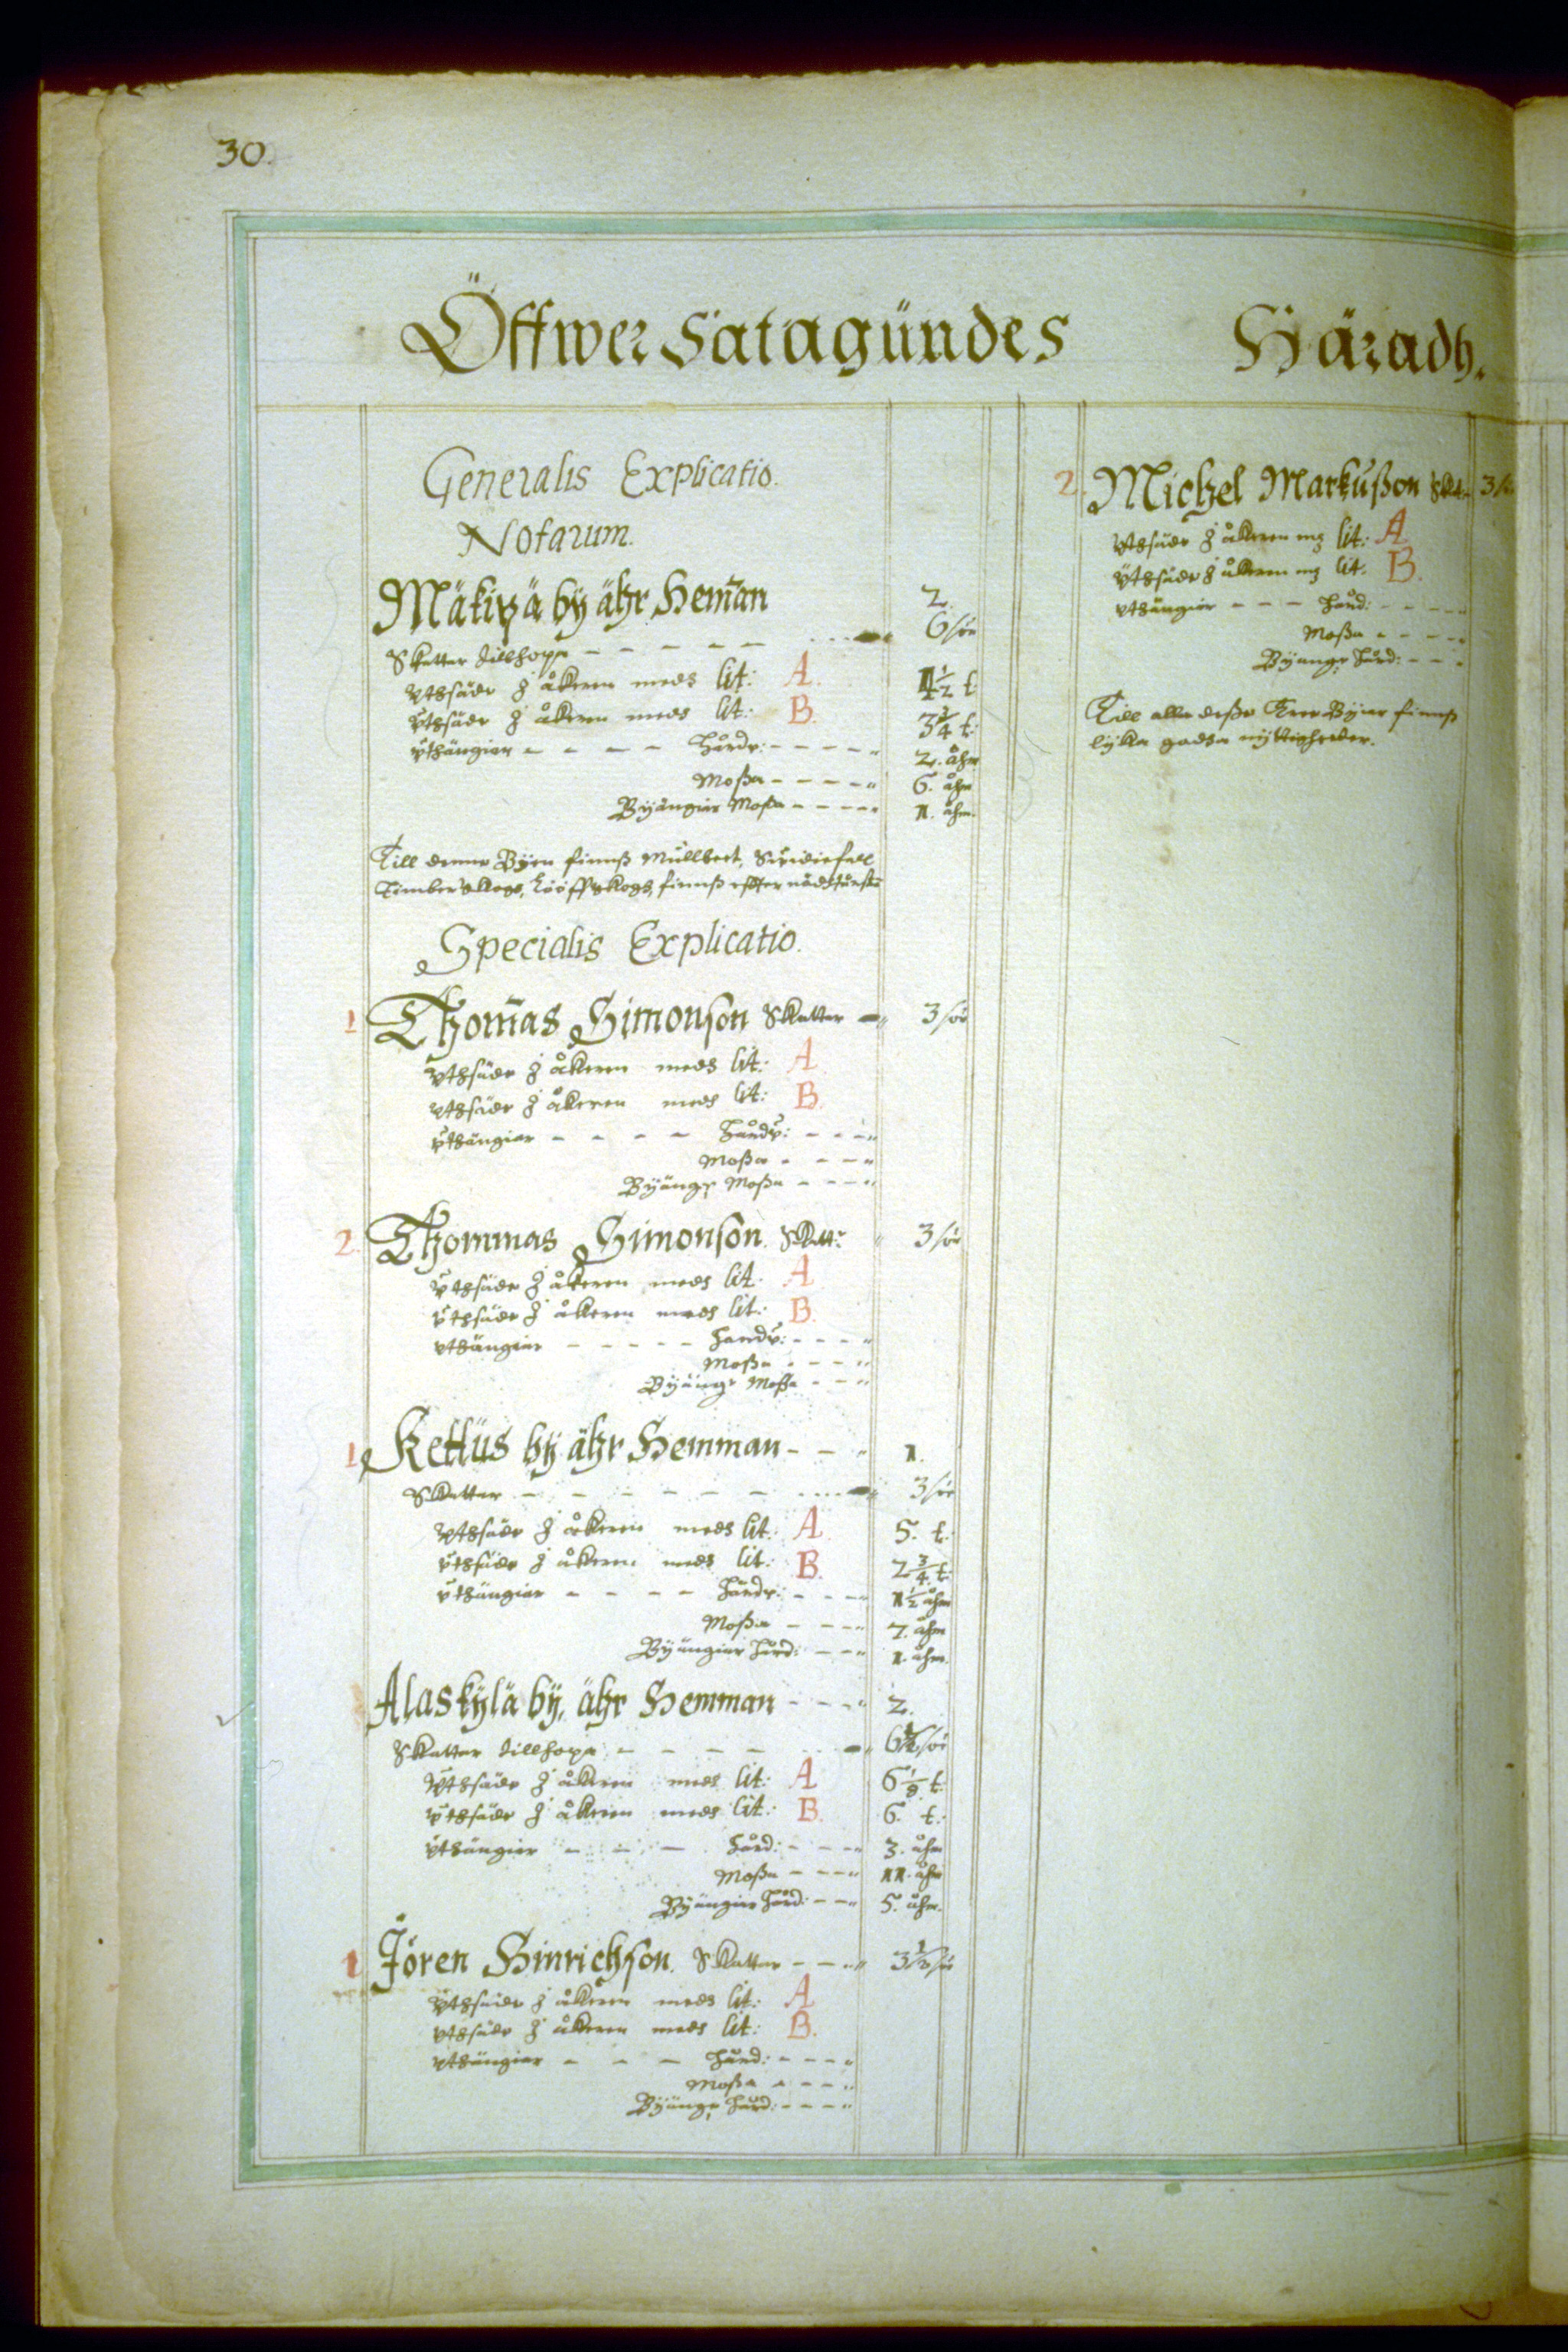 30.
Öffwer Satagündes Häradh.
Generalis Explicatio.
Notarum.
Mäkipä bÿ ähr Hem̄an 2.
Skatter tillhopa 6 sör
Vthsäde j åkeren medh lit: A. 4½ t
Vthsäde j åkeren medh lit: B. 3¾ t:
Vthängier hårdv: 2. åhm
Moßa 6. åhm
Byängier Moßa 1. åhm.
Till denne Byen finnß Mullbeet, Swidiefall
Timberskogh, Lööffskogh, finnß effter nödtürft
Specialis Explicatio.
1 Thom̄as Simonson Skatter 3 sör
Vthsäde j åkeren medh lit: A
Vthsäde j åkeren medh lit: B.
Vthängier hårdv:
Moßa
Byäng Moßa
2. Thommas Simonson. Skatt: 3 sör
Vthsäde j åkeren medh lit. A
Vthsäde j åkeren medh lit: B.
Vthängier hardv:
Moßa
Byäng Moßa
1. Kettüs bÿ ähr Hemman 1.
Skatter 3 sör
Vthsäde j åkeren medh lit: A 5. t:
Vthsäde j åkeren medh lit: B. 2¾ t:
Vthängier hårdv: 1½ åhm
Moßa 7. åhm
Byängier hård: 1. åhm.
Alaskÿlä bÿ, ähr Hemman 2.
Skatter tillhopa 6½ sör
Vthsäde j åkeren medh lit: A 6⅛ t:
Vthsäde j åkeren medh lit: B. 6. t:
Vthängier hård: 3. åhm
Moßa 11. åhm
Byängier hård: 5. åhm.
1 Jören Hinrichson. Skatter 3½ sör
Vthsäde j åkeren medh lit: A
Vthsäde j åkeren medh lit: B.
Vthängier hård:
Moßa
Byäng hård:
2. Michel Markußon Skat: 3
Vthsäde j åkeren mz lit: A
Vthsäde j åkeren mz lit. B.
Vthängier hård:
Moßa
Byäng hård:
Till alla deße Tree Byiar finnß
lÿka godha nÿttigheeter.